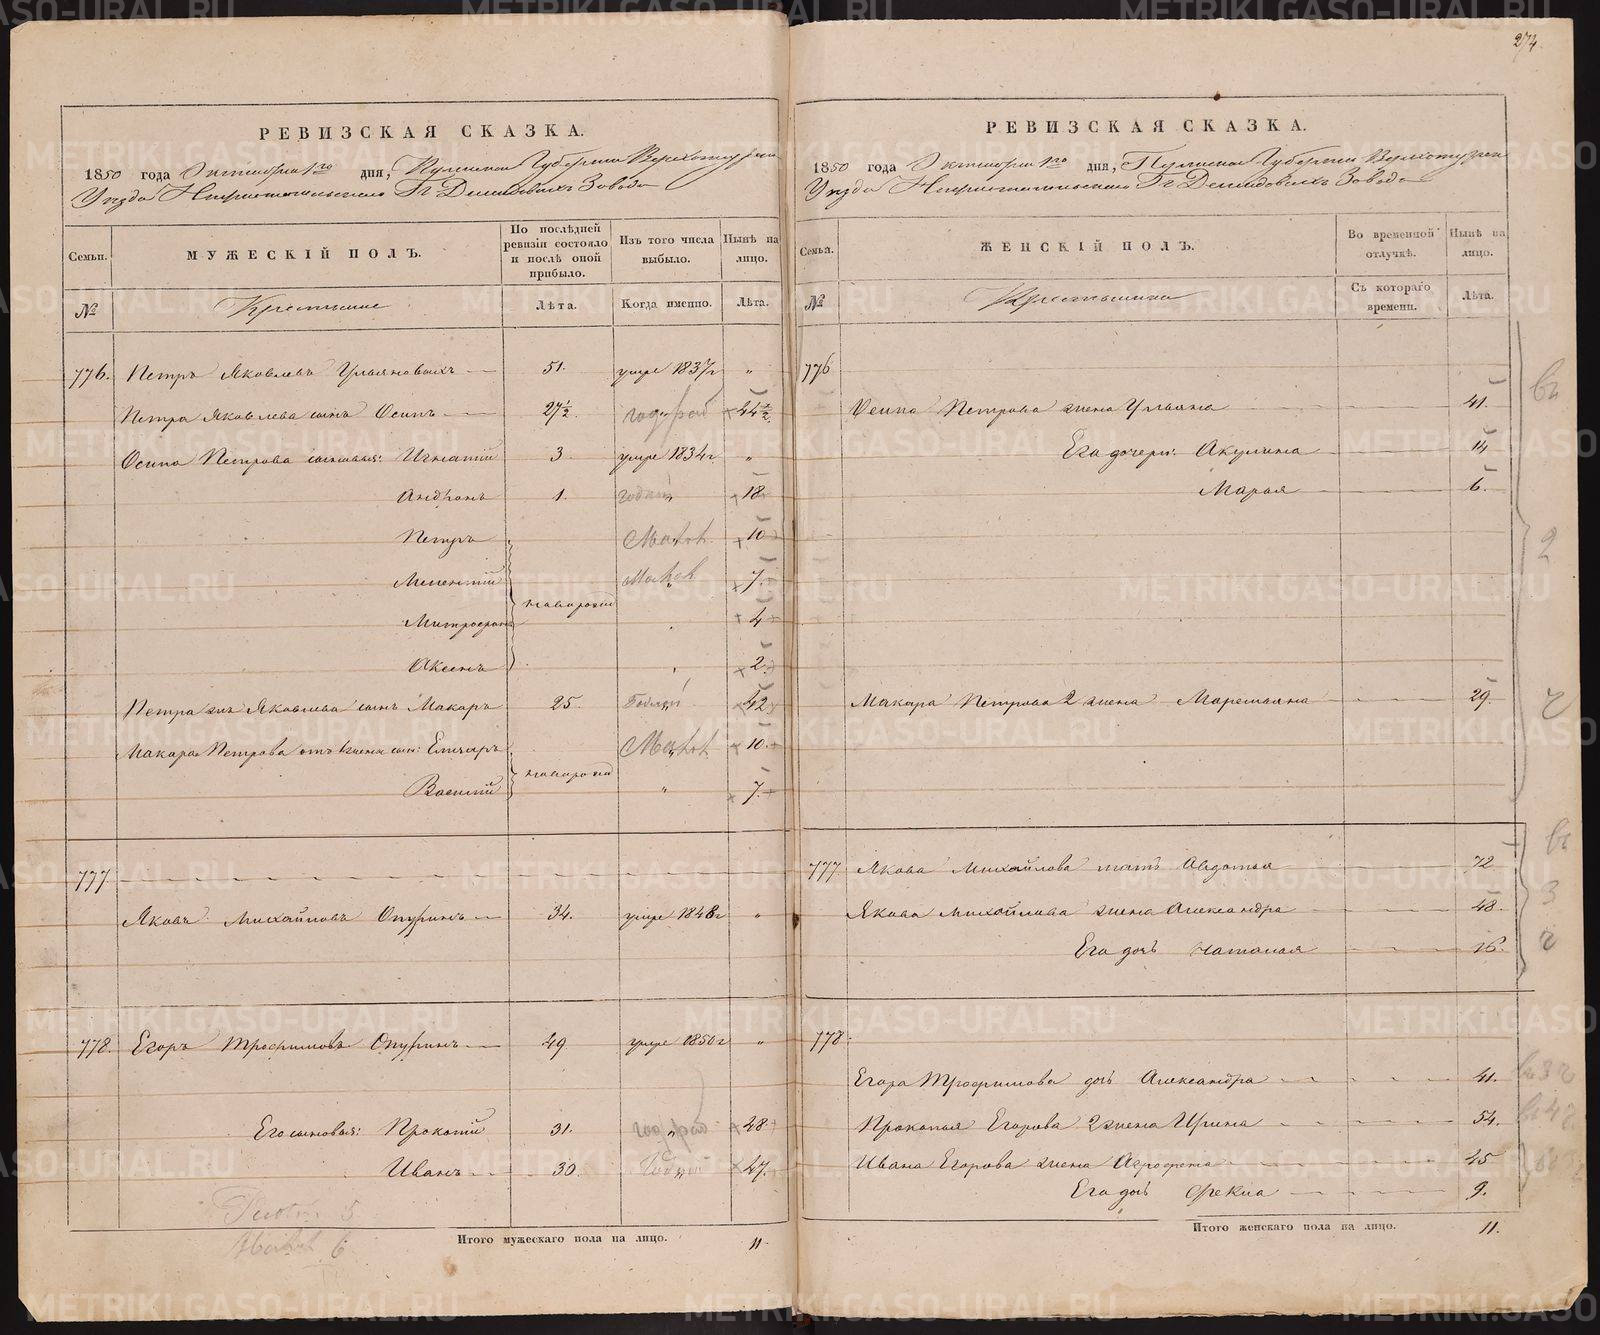 274.
РЕВИЗСКАЯ СКАЗКА.
1850 года Октября 1го дня, Пермской Губернии Верхотурскаго
Уезда Гг Демидовыхъ Завода
Семьи.
МУЖЕСКІЙ ПОЛЪ.
По послѣдней ревизіи состояло и послѣ оной прибыло.
Изъ того числа выбыло.
Нынѣ на лицо.
№
Крестьяне
Лѣта.
Когда именно.
Лѣта.
776. Петръ Яковлевъ Ульяновыхъ 51. умре 1837г "
Петра Яковлева сынъ Осипъ 27½. 44½.
Осипа Петрова сыновья: Игнатій 3. умре 1834г "
Андронъ 1. 18
Петръ 10
Мелентій 7.
новорожд
Митрофанъ 4
Аксенъ 2.
Петра Яковлева сынъ Макаръ 25. 42
Макара Петрова отъ 1 жены сын: Елизаръ 10.
новорожд
Василій 7.
777
Яковъ Михайловъ Опуринъ 34. умре 1848г "
778. Егоръ Трофимовъ Опуринъ 49. умре 1850г "
Его сыновья: Прокопій 31. 48
Иванъ 30. 47.
5
6
Итого мужескаго пола на лицо. 11
РЕВИЗСКАЯ СКАЗКА.
1850 года Октября 1го дня, Пермской Губернии Верхотурскаго
Уезда Гг Демидовыхъ Завода
Семьи.
ЖЕНСКІЙ ПОЛЪ.
Во временной отлучкѣ.
Нынѣ на лицо.
№
Съ котораго времени.
Лѣта.
776
Осипа Петрова жена Ульяна 41.
Его дочери: Акулина 14
Марья 6.
Макара Петрова 2 жена Маремьяна 29.
777 Якова Михайлова мать Авдотья 72
Якова Михайлова жена Александра 48.
Его дочь Наталья 16.
778.
Егора Трофимова дочь Александра 41.
Прокопья Егорова 2 жена Ирина 54.
Ивана Егорова жена Агрофена 45
Его дочь Фекла 9.
Итого женскаго пола на лицо. 11.
METRIKI.GASO-URAL.RU